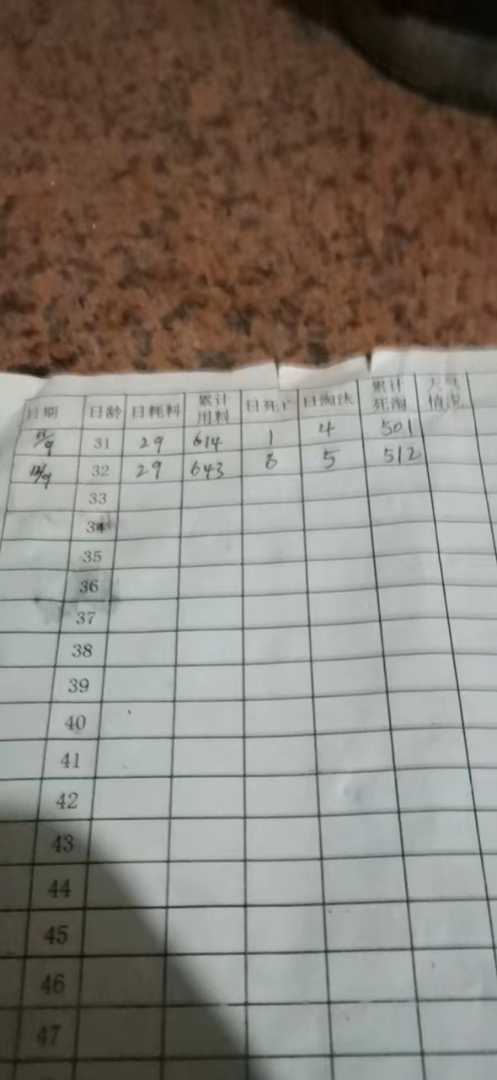 日期 日龄 日耗料 累计用料 日死亡 日淘汰 累计死淘 天气情况
31 29 614 1 4 501
12/9 32 29 643 6 5 512
33
34
35
36
37
38
39
40
41
42
43
44
45
46
47